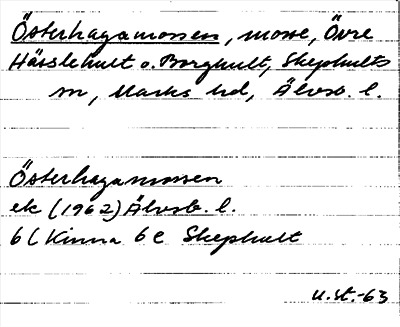 Österhagamossen, mosse, Övre
Hässlehult o. Borghult, Skephults
sn, Marks hd, Älvsb. l.
Österhagamossen
ek (1962) Älvsb. l.
6C Kinna 6e Skephult
U.St.-63